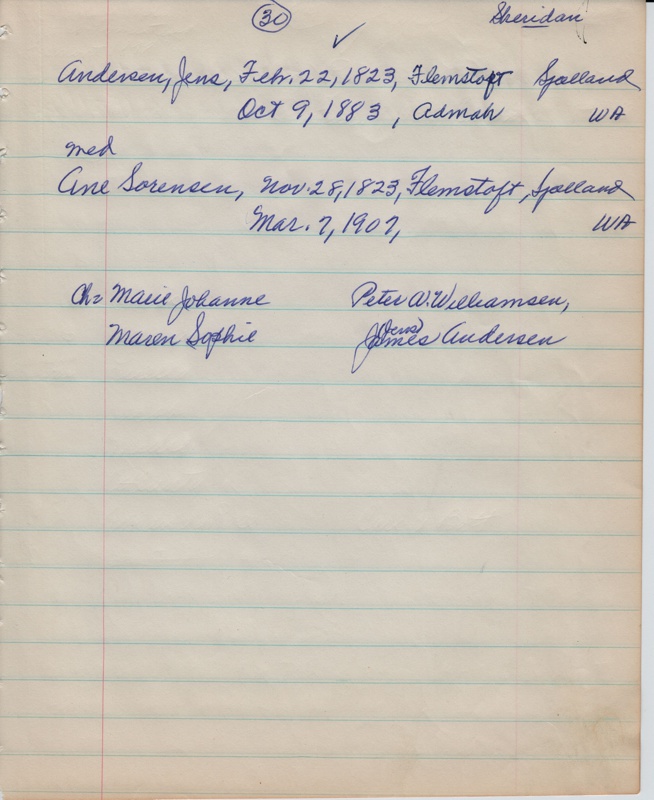 30 Sheridan
✓
Andersen, Jens, Feb. 22, 1823, Flemstoft Sjælland
Oct 9, 1883, Admah WA
med
Ane Sorensen, Nov. 28, 1823, Flemstoft, Sjælland
Mar. 7, 1907, WA
Ch: Marie Johanne Peter W. Williamsen,
Maren Sophie James (Jens) Andersen